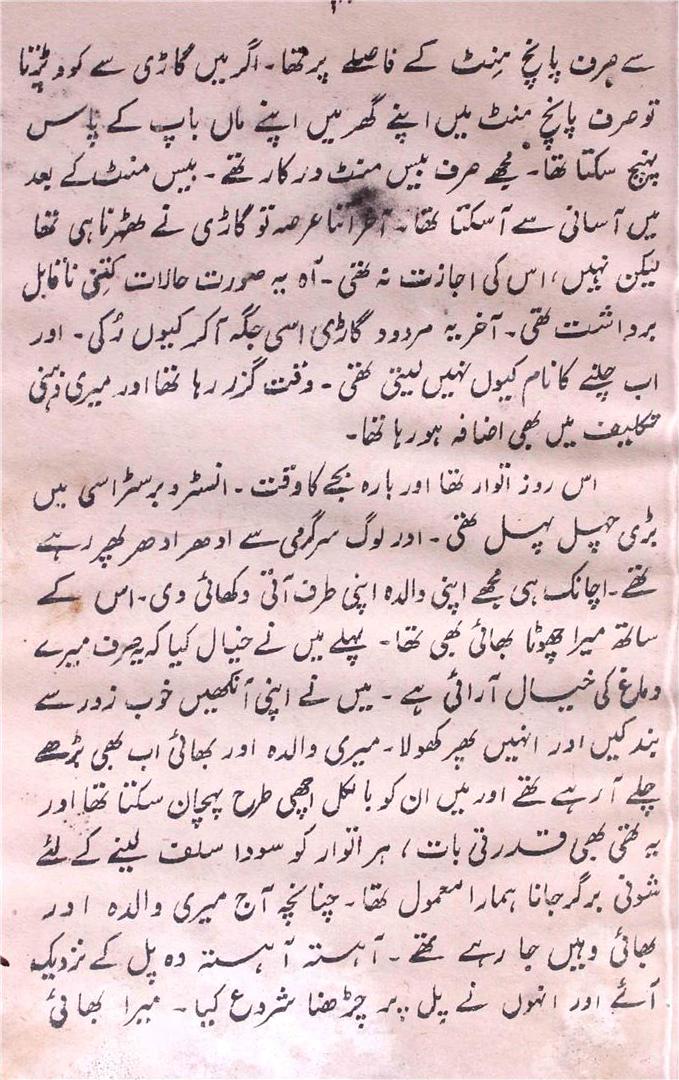 سے صرف پانچ منٹ کے فاصلے پر تھا۔ اگر میں گاڑی سے کود پڑتا
تو صرف پانچ منٹ میں اپنے گھر میں اپنے ماں باپ کے پاس
پہنچ سکتا تھا۔ مجھے صرف بیس منٹ درکار تھے۔ بیس منٹ کے بعد
میں آسانی سے آ سکتا تھا۔ آخر اتنا عرصہ تو گاڑی نے ٹھہرنا ہی تھا
لیکن نہیں، اس کی اجازت نہ تھی۔ آہ یہ صورت حالات کتنی ناقابل
برداشت تھی۔ آخر یہ مردود گاڑی اسی جگہ آ کر کیوں رُکی۔ اور
اب چلنے کا نام کیوں نہیں لیتی تھی۔ وقت گزر رہا تھا اور میری ذہنی
تکلیف میں بھی اضافہ ہو رہا تھا۔
اس روز اتوار تھا اور بارہ بجے کا وقت۔ انسٹرو برسٹراسی میں
بڑی چہل پہل تھی۔ اور لوگ سرگرمی سے ادھر ادھر پھر رہے
تھے۔ اچانک ہی مجھے اپنی والدہ اپنی طرف آتی دکھائی دی۔ اس کے
ساتھ میرا چھوٹا بھائی بھی تھا۔ پہلے میں نے خیال کیا کہ یہ صرف میرے
دماغ کی خیال آرائی ہے۔ میں نے اپنی آنکھیں خوب زور سے
بند کیں اور انہیں پھر کھولا۔ میری والدہ اور بھائی اب بھی بڑھے
چلے آ رہے تھے اور میں ان کو بالکل اچھی طرح پہچان سکتا تھا اور
یہ تھی بھی قدرتی بات، ہر اتوار کو سودا سلف لینے کے لئے
شونی برگر جانا ہمارا معمول تھا۔ چنانچہ آج میری والدہ اور
بھائی وہیں جا رہے تھے۔ آہستہ آہستہ وہ پل کے نزدیک
آئے اور انہوں نے پل پر چڑھنا شروع کیا۔ میرا بھائی